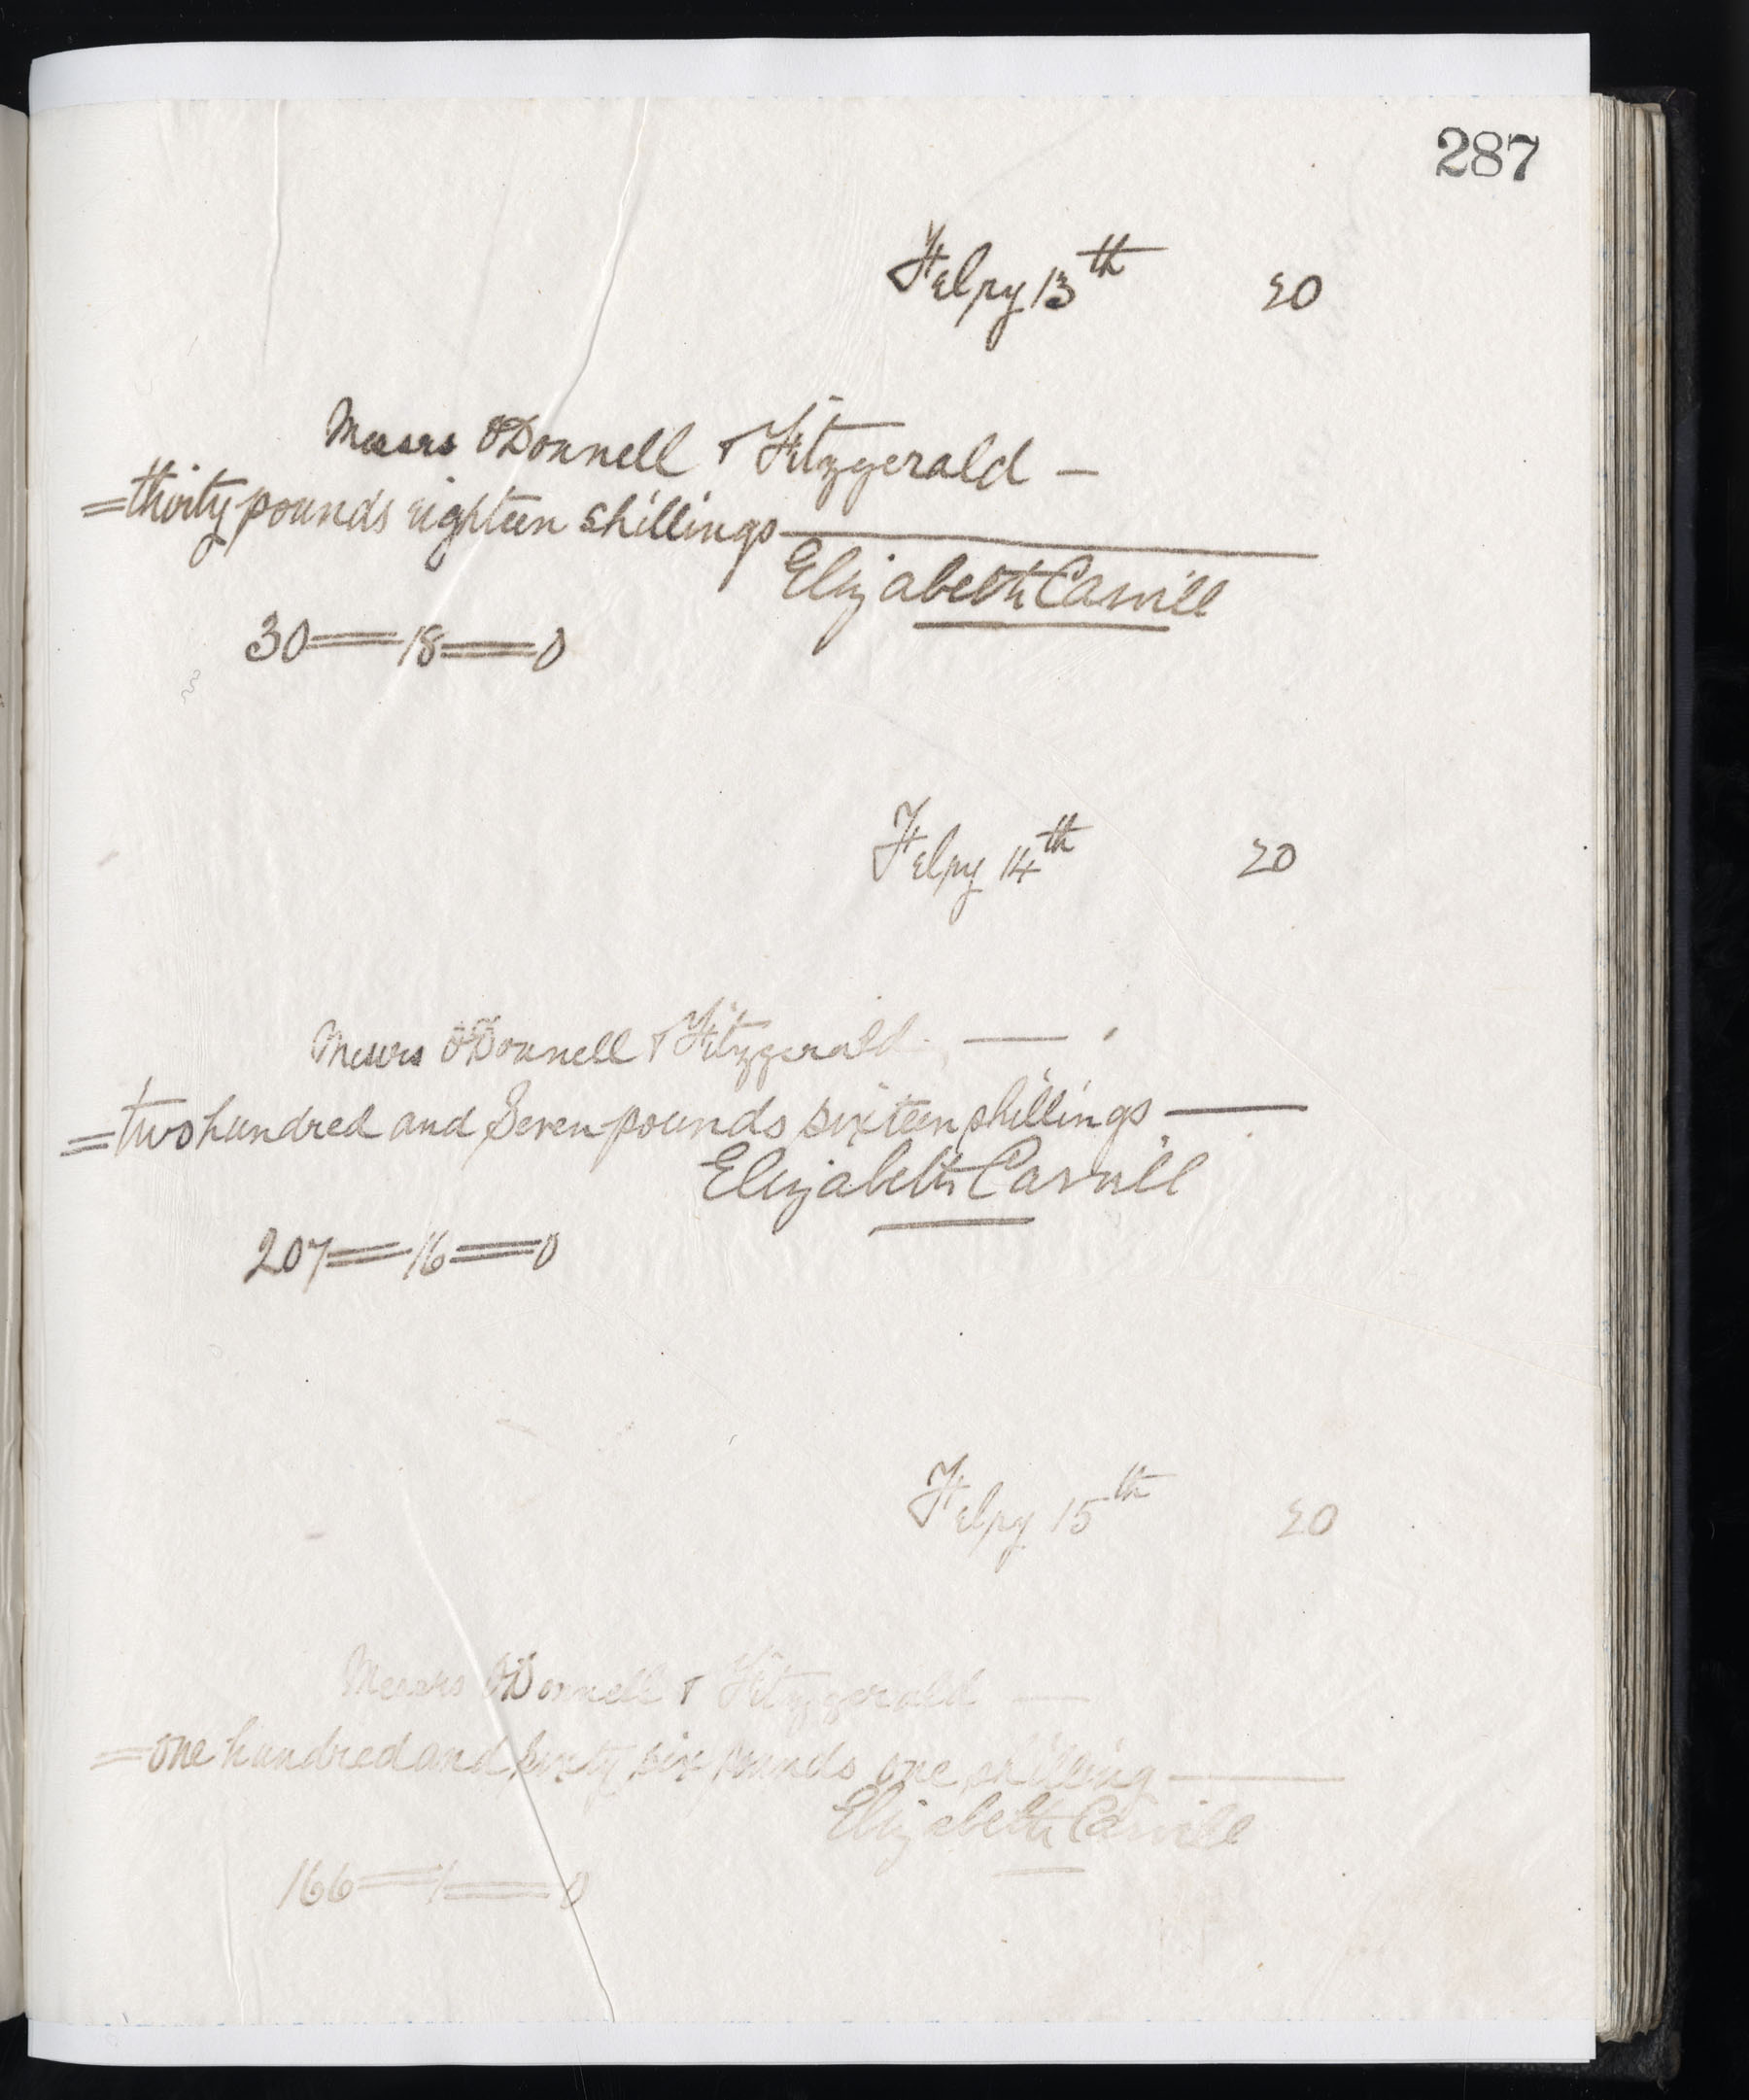 287
Febry 13th 20
Messrs O'Donnell & Fitzgerald —
=thirty pounds eighteen shillings—
Elizabeth Carvill
30=18=0
Febry 14th 20
Messrs O'Donnell & Fitzgerald. —
=two hundred and Seven pounds sixteen shillings—
Elizabeth Carvill
207=16=0
Febry 15th 20
Messrs O'Donnell & Fitzgerald —
=one hundred and sixty six pounds one shilling—
Elizabeth Carvill
166=1=0